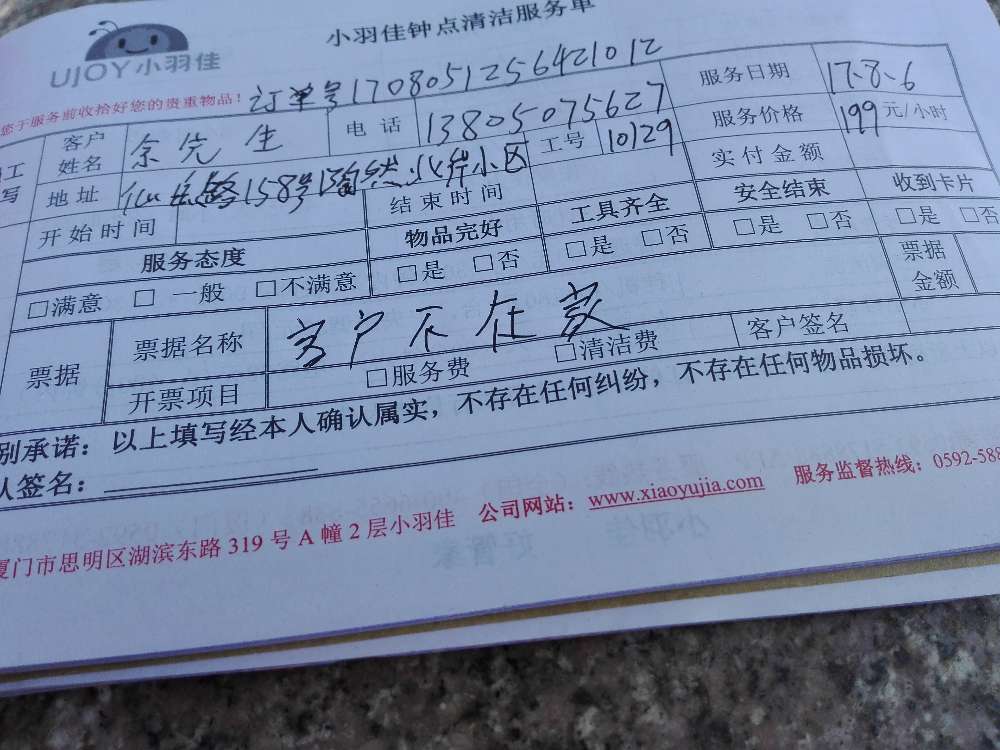 小羽佳钟点清洁服务单
UJOY小羽佳
您于服务前收拾好您的贵重物品！ 订单号1708051256421012
工 客户姓名 余先生 电话 13805075627 服务日期 17.8.6
写 地址 仙岳路158号 小区 工号 10129 服务价格 199 元/小时
开始时间 结束时间 实付金额
服务态度 物品完好 工具齐全 安全结束 收到卡片
□满意 □ 一般 □不满意 □是 □否 □是 □否 □是 □否 □是 □否
票据 票据名称 客户不在家 票据金额
开票项目 □服务费 □清洁费 客户签名
别承诺：以上填写经本人确认属实，不存在任何纠纷，不存在任何物品损坏。
人签名：
厦门市思明区湖滨东路 319 号 A 幢 2 层小羽佳 公司网站：www.xiaoyujia.com 服务监督热线：0592-588